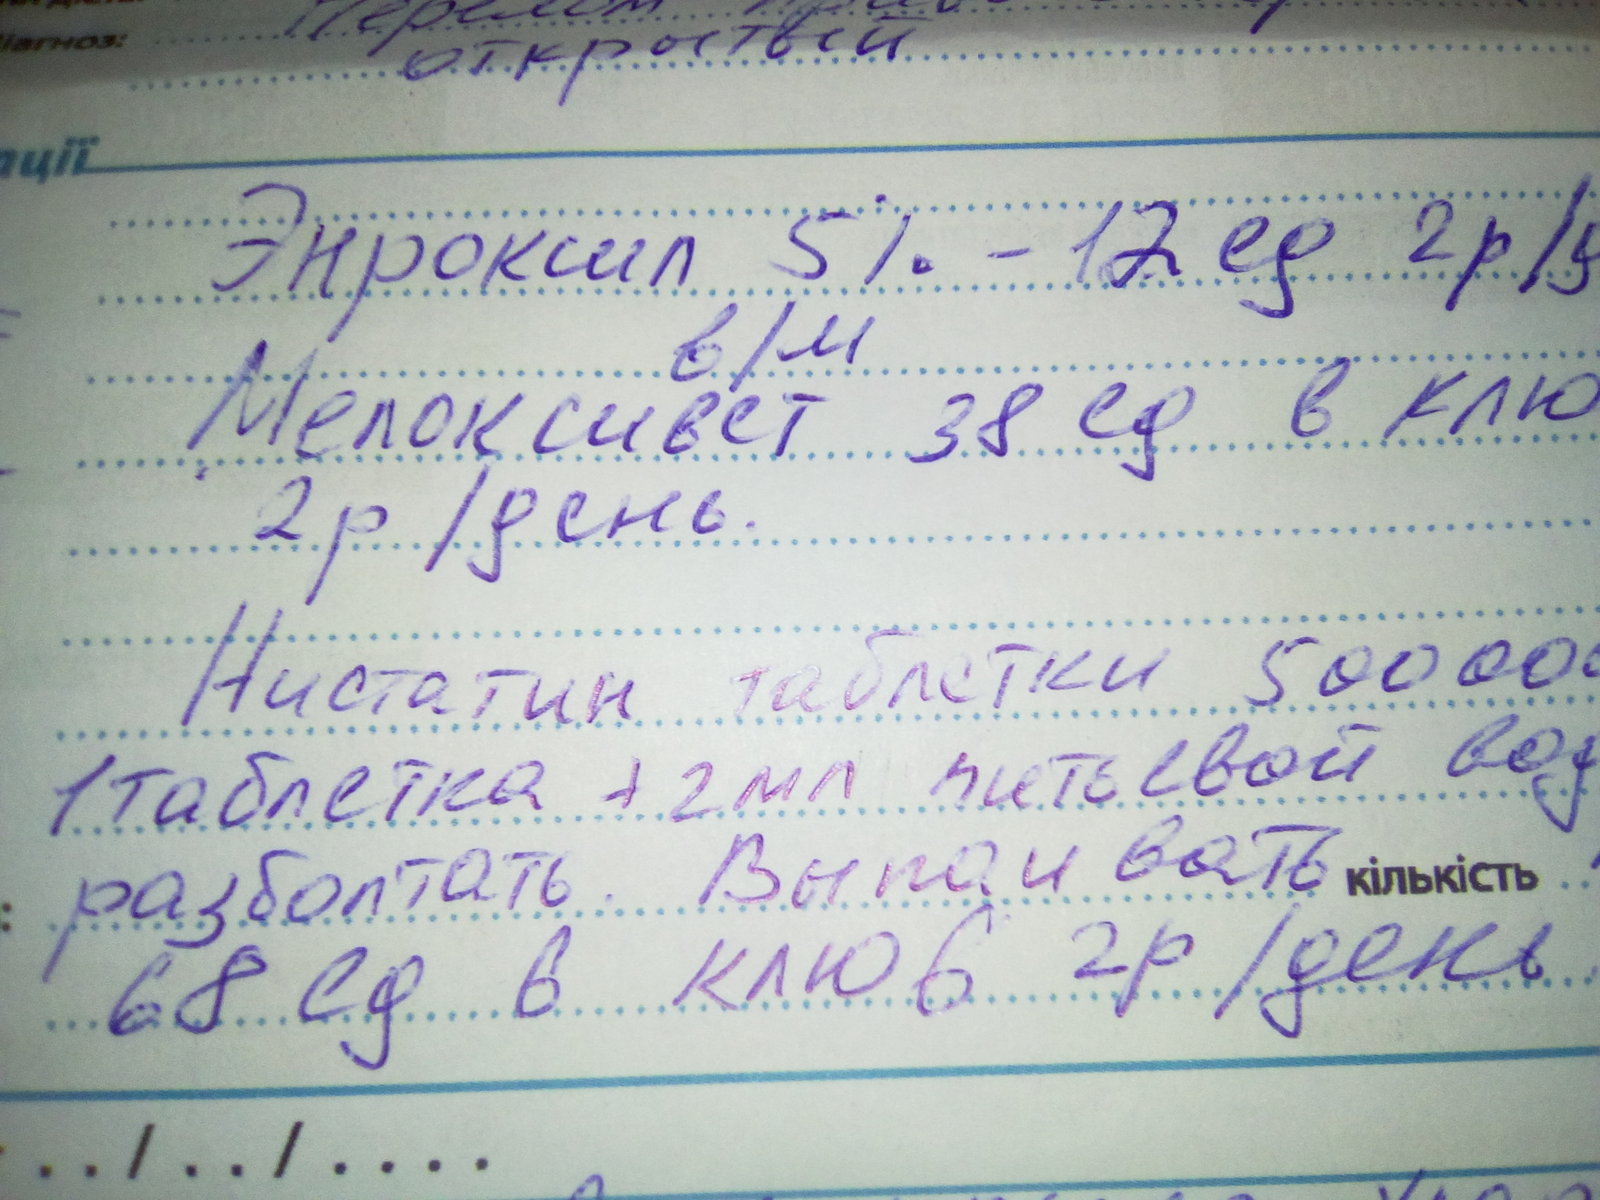 Діагноз: Перелом
открытый
ації
Энроксил 5% - 12 ед 2р/д
в/м
Мелоксивет 38 ед в клю
2р /день.
Нистатин таблетки 500000
1 таблетка + 2 мл питьевой вод
разболтать. Выпаивать кількість
68 ед в клюв 2р /день
../../....